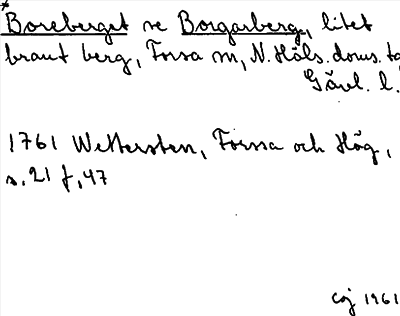 * Boreberget se Borgarberg, litet
brant berg, Forsa sn, N. Häls. doms. ta
Gävl. l.
1761 Wettersten, Forssa och Hög,
s. 21 f, 47
CG 1961